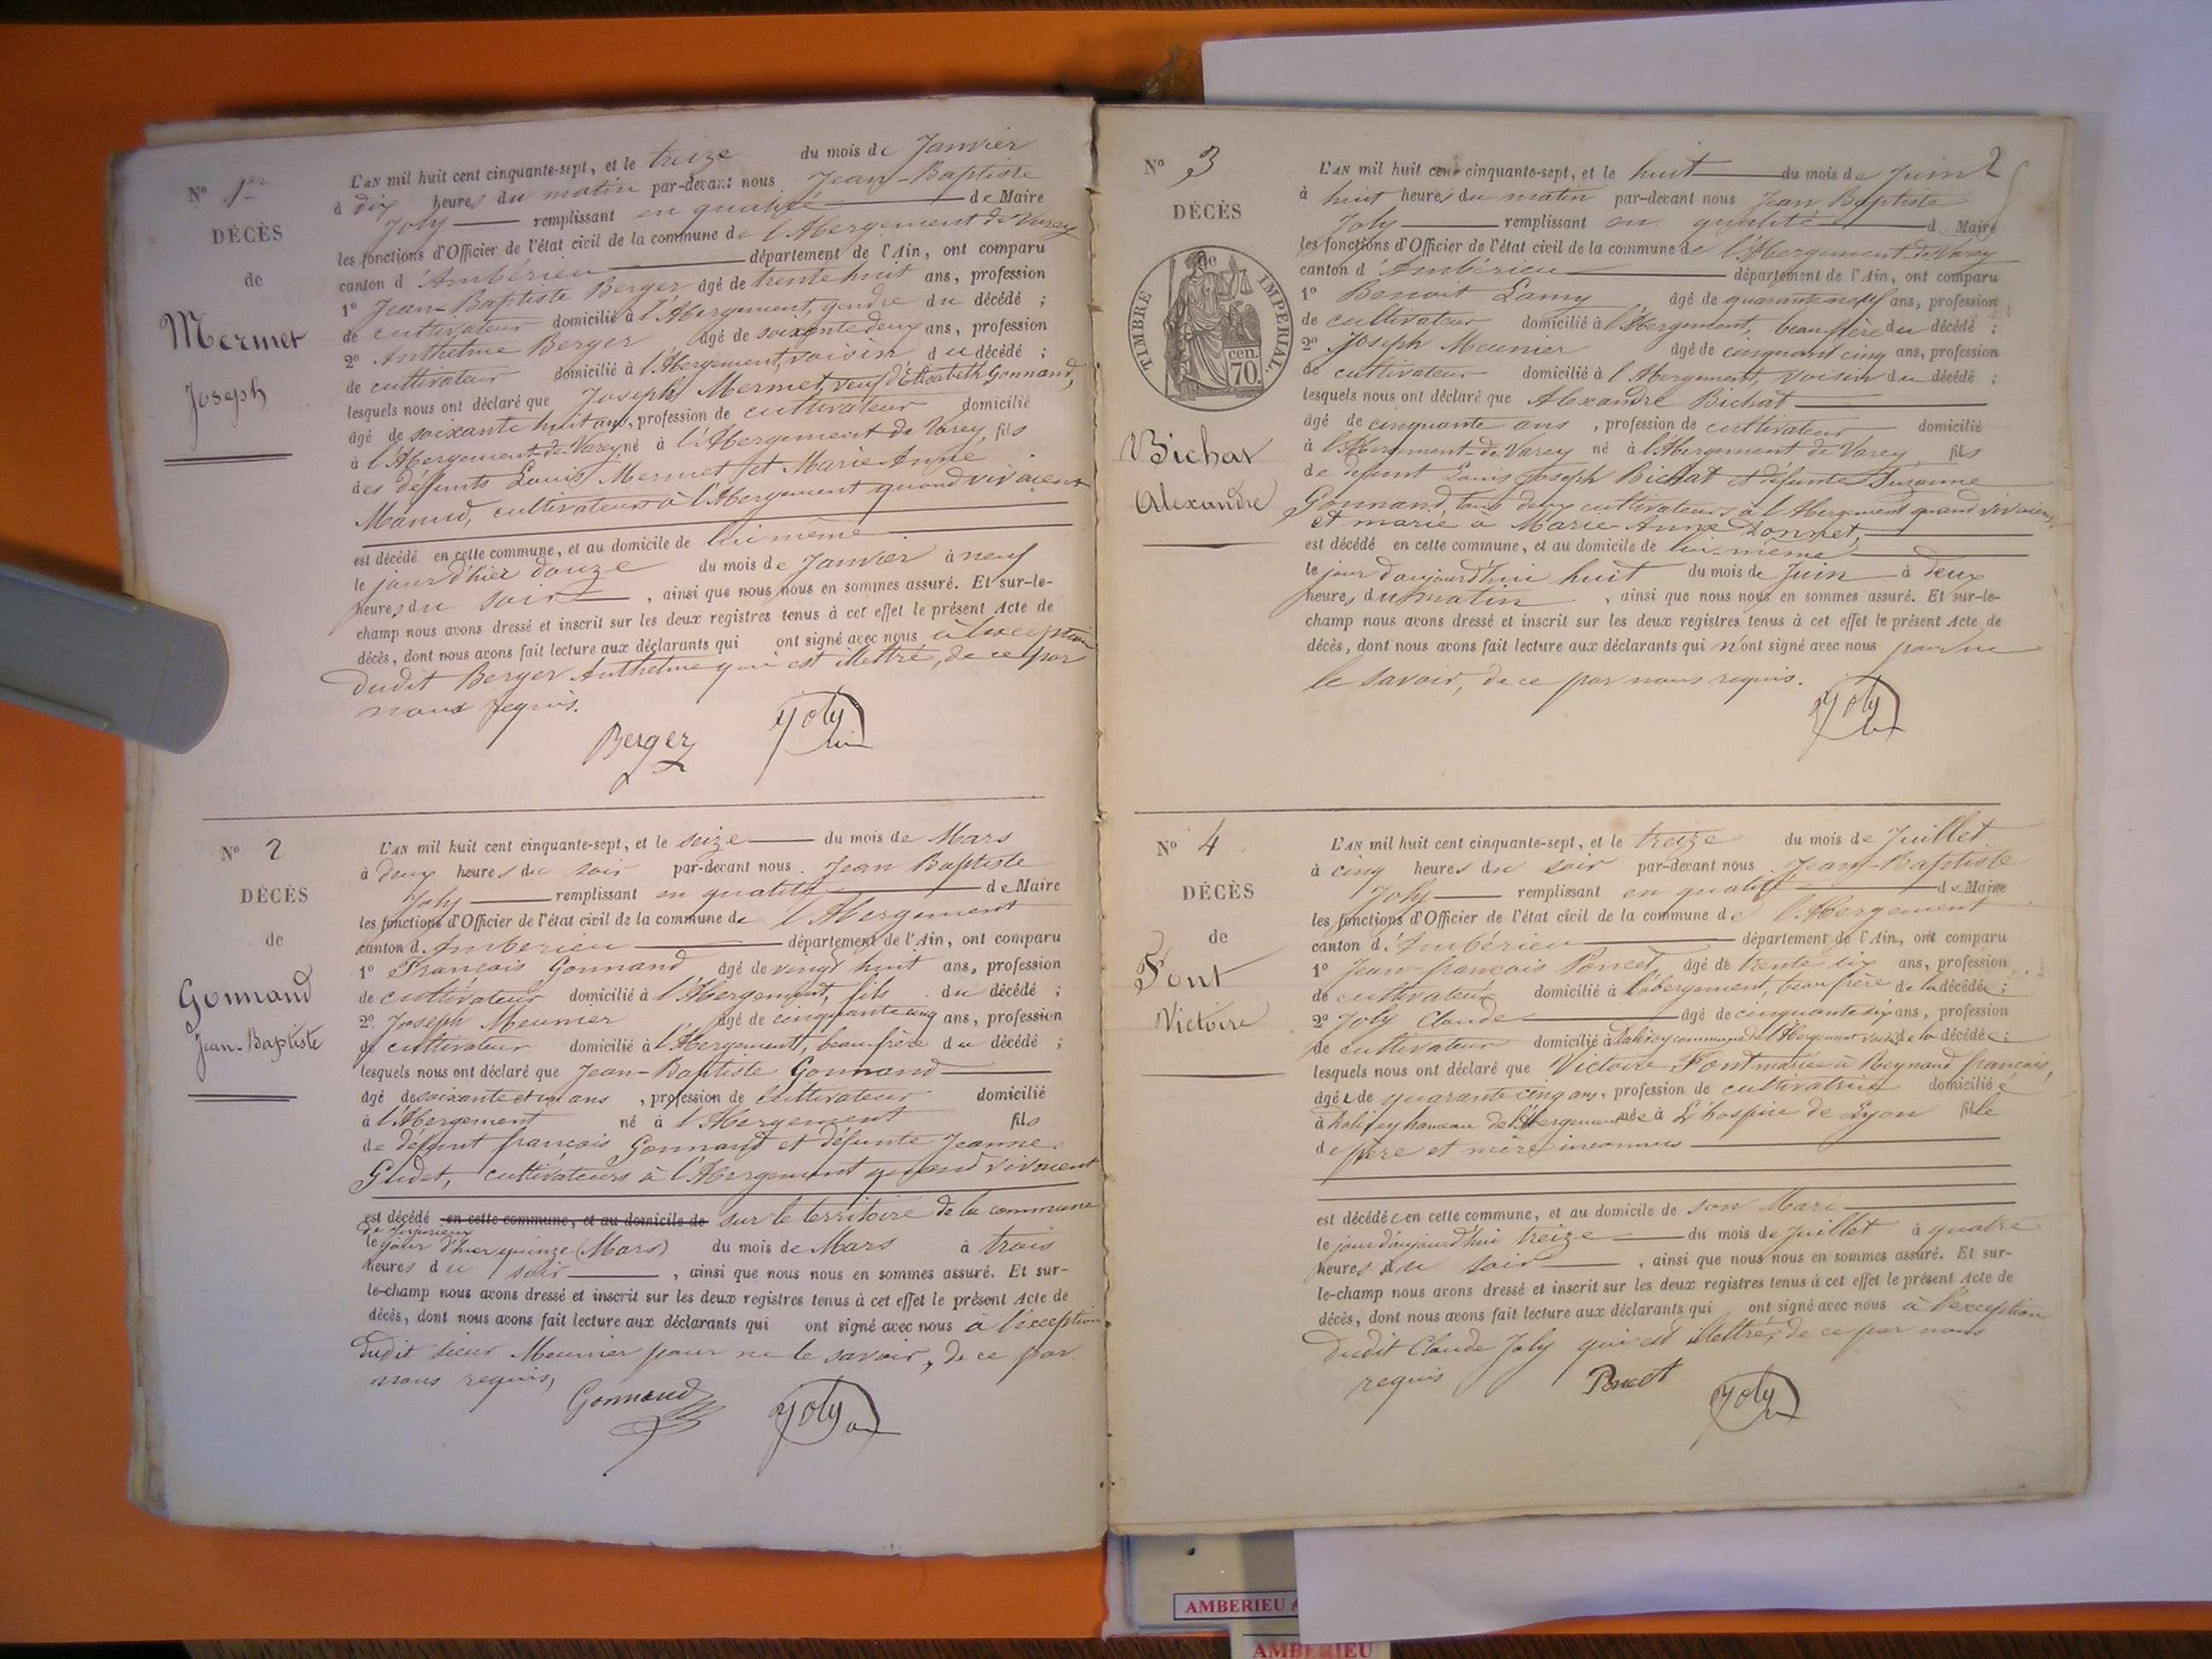 N° 1er
DÉCÈS
de
Mermet
Joseph
L'AN mil huit cent cinquante-sept, et le treize du mois de Janvier
à dix heures du matin par-devant nous Jean-Baptiste
Joly remplissant en qualité de Maire
les fonctions d'Officier de l'état civil de la commune de l'Abergement de Varey
canton d'Ambérieu département de l'Ain, ont comparu
1° Jean-Baptiste Berger âgé de trente huit ans, profession
de cultivateur domicilié à l'Abergement, gendre du décédé ;
2° Anthelme Berger âgé de soixante deux ans, profession
de cultivateur domicilié à l'Abergement, voisin du décédé ;
lesquels nous ont déclaré que Joseph Mermet, veuf d'Elisabeth Gonnand,
âgé de soixante huit ans, profession de cultivateur domicilié
à l'Abergement-de-Varey né à l'Abergement de Varey, fils
des défunts Louis Mermet et Marie Anne
cultivateurs à l'Abergement quand vivaient
est décédé en cette commune, et au domicile de lui même
le jour d'hier douze du mois de Janvier à neuf
heures du soir , ainsi que nous nous en sommes assuré. Et sur-le-
champ nous avons dressé et inscrit sur les deux registres tenus à cet effet le présent Acte de
décès, dont nous avons fait lecture aux déclarants qui ont signé avec nous à l'exception
dudit Berger Anthelme qui est illettré, de ce par
nous requis.
Berger Joly
N° 2
DÉCÈS
de
Gonnand
Jean-Baptiste
L'AN mil huit cent cinquante-sept, et le seize du mois de Mars
à deux heures du soir par-devant nous Jean Baptiste
Joly remplissant en qualité de Maire
les fonctions d'Officier de l'état civil de la commune de l'Abergement
canton d'Amberieu département de l'Ain, ont comparu
1° François Gonnand âgé de vingt huit ans, profession
de cultivateur domicilié à l'Abergement, fils du décédé ;
2° Joseph Meunier âgé de cinquante cinq ans, profession
de cultivateur domicilié à l'Abergement, beau frère du décédé ;
lesquels nous ont déclaré que Jean-Baptiste Gonnand
âgé de soixante et un ans , profession de cultivateur domicilié
à l'Abergement né à l'Abergement fils
de défunt françois Gonnand et défunte Jeanne
cultivateurs à l'Abergement quand vivaient
est décédé en cette commune, et au domicile de sur le territoire de la commune
de Jujurieux
le jour d'hier quinze (Mars) du mois de Mars à trois
heures du soir , ainsi que nous nous en sommes assuré. Et sur-
le-champ nous avons dressé et inscrit sur les deux registres tenus à cet effet le présent Acte de
décès, dont nous avons fait lecture aux déclarants qui ont signé avec nous à l'exception
dudit sieur Meunier pour ne le savoir, de ce par
nous requis,
Gonnand Joly
2
N° 3
DÉCÈS
de
TIMBRE IMPÉRIAL.
70 cen.
Bichat
Alexandre
L'AN mil huit cent cinquante-sept, et le huit du mois de Juin
à huit heures du matin par-devant nous Jean Baptiste
Joly remplissant en qualité de Maire
les fonctions d'Officier de l'état civil de la commune de l'Abergement-de-Varey
canton d'Ambérieu département de l'Ain, ont comparu
1° Benoit Lamy âgé de quarante neuf ans, profession
de cultivateur domicilié à l'Abergement, beau frère du décédé ;
2° Joseph Meunier âgé de cinquante cinq ans, profession
de cultivateur domicilié à l'Abergement, voisin du décédé ;
lesquels nous ont déclaré que Alexandre Bichat
âgé de cinquante ans , profession de cultivateur domicilié
à l'Abergement-de-Varey né à l'Abergement de Varey fils
de défunt Louis Joseph Bichat et défunte Suzanne
Gonnand, tous deux cultivateurs à l'Abergement quand vivaient,
et marié à Marie Anne
est décédé en cette commune, et au domicile de lui-même
le jour d'aujourd'hui huit du mois de Juin à deux
heures du matin , ainsi que nous nous en sommes assuré. Et sur-le-
champ nous avons dressé et inscrit sur les deux registres tenus à cet effet le présent Acte de
décès, dont nous avons fait lecture aux déclarants qui n'ont signé avec nous pour ne
le savoir, de ce par nous requis.
Joly
N° 4
DÉCÈS
de
Font
Victoire
L'AN mil huit cent cinquante-sept, et le treize du mois de Juillet
à cinq heures du soir par-devant nous Jean-Baptiste
Joly remplissant en qualité de Maire
les fonctions d'Officier de l'état civil de la commune de l'Abergement
canton d'Ambérieu département de l'Ain, ont comparu
1° Jean-françois Poncet âgé de trente six ans, profession
de cultivateur domicilié à l'abergement, beau frère de la décédée ;
2° Joly Claude âgé de cinquante six ans, profession
de cultivateur domicilié à commune de l'Abergement voisin de la décédée ;
lesquels nous ont déclaré que Victoire Font mariée à Reynaud françois,
âgée de quarante cinq ans, profession de cultivatrice domiciliée
à hameau de l'Abergement née à L'hospice de Lyon fille
de père et mère inconnus
est décédée en cette commune, et au domicile de son Mari
le jour d'aujourd'hui treize du mois de Juillet à quatre
heures du soir , ainsi que nous nous en sommes assuré. Et sur-
le-champ nous avons dressé et inscrit sur les deux registres tenus à cet effet le présent Acte de
décès, dont nous avons fait lecture aux déclarants qui ont signé avec nous à l'exception
dudit Claude Joly qui est illettré, de ce par nous
requis
Poncet Joly
AMBERIEU
AMBERIEU